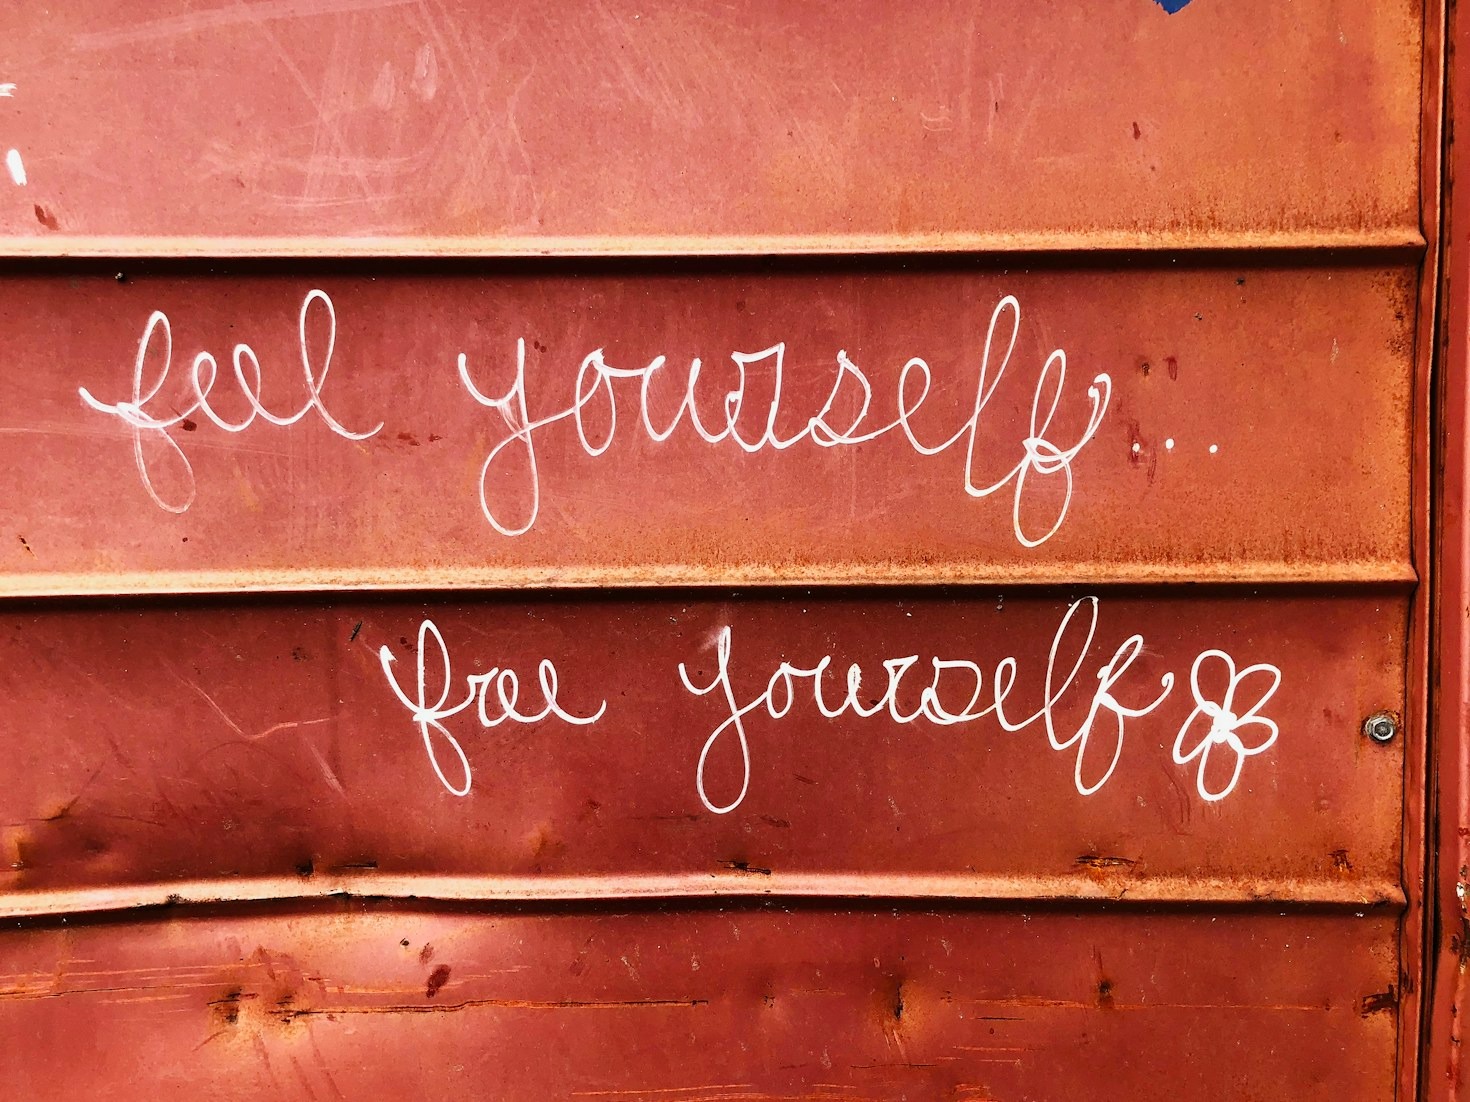 feel yourself...
free yourself